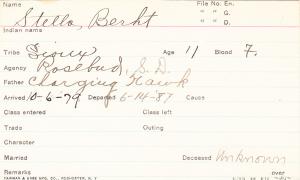 Name File No: En.
Stella, Berht " " G.
Indian name " " D.
Tribe Sioux Age 11 Blood F.
Agency Rosebud, S. D.
Father Charging Hawk
Arrived 10-6-79 Departed 6-14-87 Cause
Class entered Class left
Trade Outing
Character
Married Deceased Unknown
Remarks over